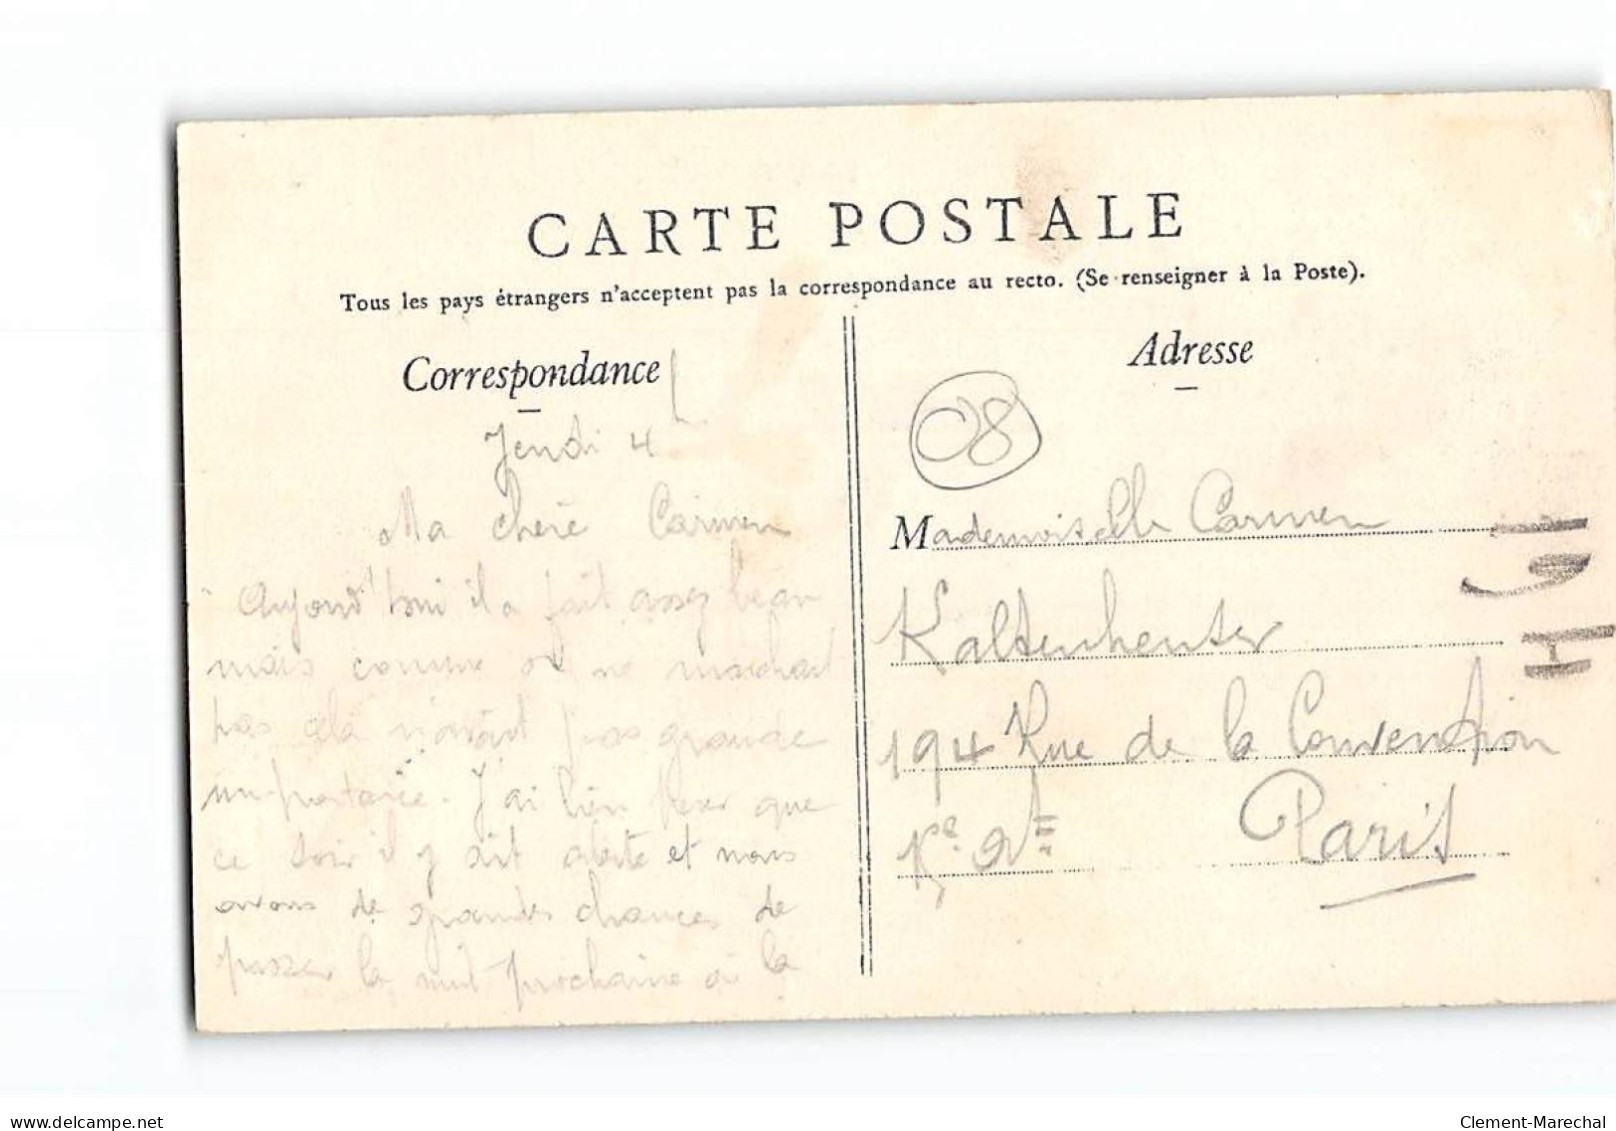 CARTE POSTALE
Tous les pays étrangers n'acceptent pas la correspondance au recto. (Se renseigner à la Poste).
Correspondance
Jeudi 4
Ma chère Carmen
Aujourd'hui il a fait assez beau
mais comme on ne marchait
pas cela n'avait pas grande
importance. J'ai bien peur que
ce soir il y ait alerte et nous
avons de grandes chances de
passer la nuit prochaine à la
Adresse
08
Mademoiselle Carmen
Kaltenheuser
194 Rue de la Convention
Paris
delcampe.net
Clement-Marechal